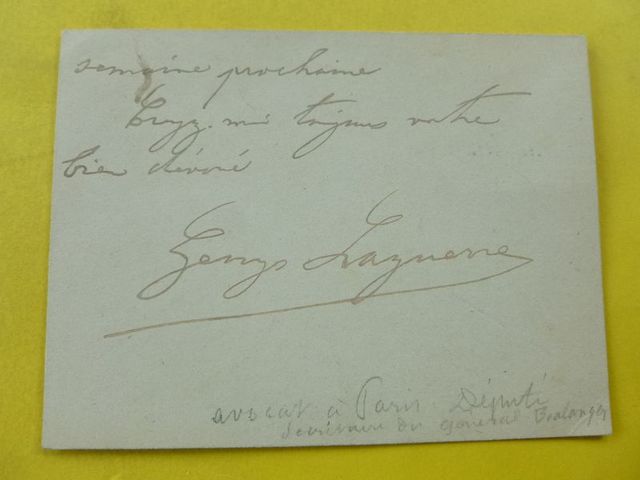 semaine prochaine
Croyez-moi toujours votre
bien dévoué
Georges Laguerre
avocat à Paris Député
Secrétaire du général Boulanger